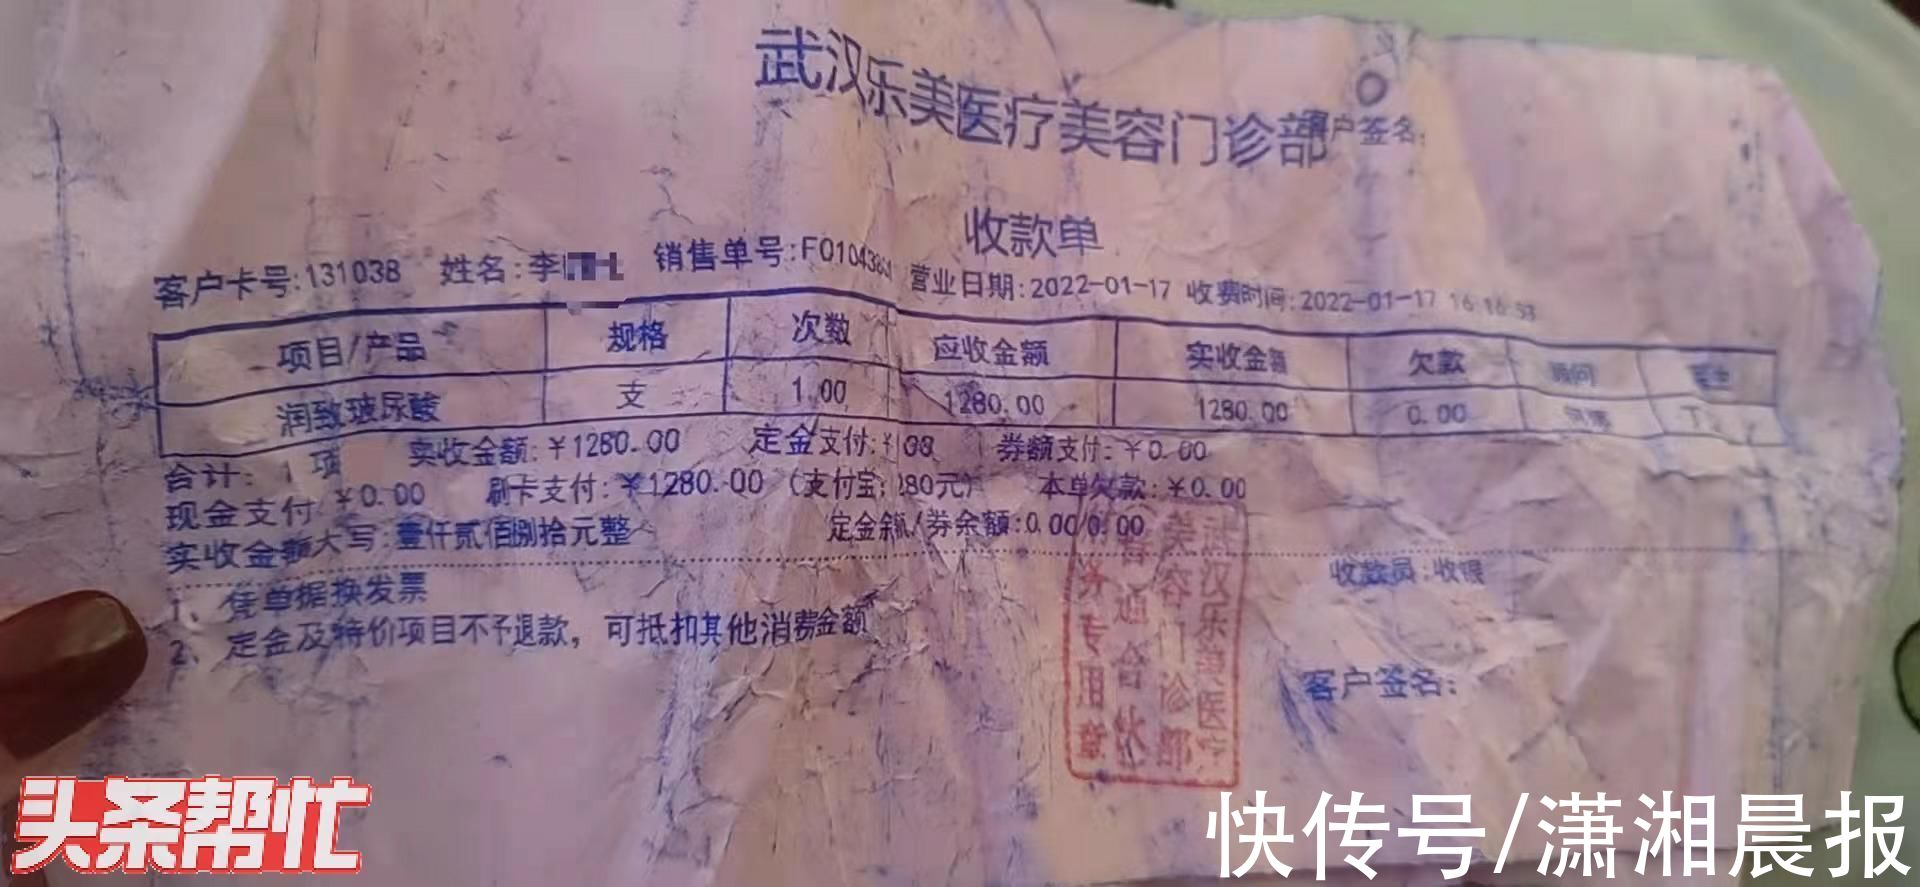 武汉乐美医疗美容门诊部
户签名:
收款单
客户卡号:131038 姓名:李 销售单号:F01043 营业日期:2022-01-17 收费时间:2022-01-17 16:16:53
项目/产品 规格 次数 应收金额 实收金额 欠款 顾问
润致玻尿酸 支 1.00 1280.00 1280.00 0.00
合计: 1 项 实收金额:¥1280.00 定金支付:¥ 00 券额支付:¥0.00
现金支付 ¥0.00 刷卡支付:¥1280.00 (支付宝: 280元) 本单欠款:¥0.00
实收金额大写:壹仟贰佰捌拾元整 定金余额/券余额:0.00/0.00
收款员:收银
1、凭单据换发票
2、定金及特价项目不予退款,可抵扣其他消费金额
客户签名:
武汉乐美医疗
美容门诊部
务专用章
头条帮忙
快传号/潇湘晨报